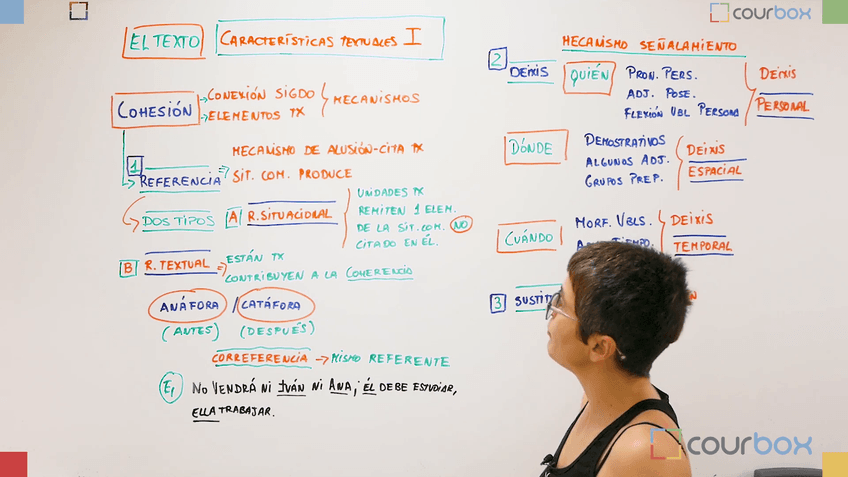 courbox
courbox
EL TEXTO
CARACTERÍSTICAS TEXTUALES I
COHESIÓN
CONEXIÓN SIGDO
ELEMENTOS TX
MECANISMOS
1
REFERENCIA
MECANISMO DE ALUSIÓN-CITA TX
SIT. COM. PRODUCE
DOS TIPOS
A R. SITUACIONAL
UNIDADES TX
REMITEN 1 ELEM.
DE LA SIT. COM. NO
CITADO EN ÉL.
B R. TEXTUAL
ESTÁN TX
CONTRIBUYEN A LA COHERENCIA
ANÁFORA / CATÁFORA
(ANTES) (DESPUÉS)
CORREFERENCIA → MISMO REFERENTE
NO VENDRÁ NI IVÁN NI ANA; ÉL DEBE ESTUDIAR,
ELLA TRABAJAR.
MECANISMO SEÑALAMIENTO
2
DEIXIS
QUIÉN
PRON. PERS.
ADJ. POSE.
FLEXIÓN VBL PERSONA
DEIXIS
PERSONAL
DÓNDE
DEMOSTRATIVOS
ALGUNOS ADJ.
GRUPOS PREP.
DEIXIS
ESPACIAL
CUÁNDO
MORF. VBLS.
TIEMPO.
DEIXIS
TEMPORAL
3
courbox